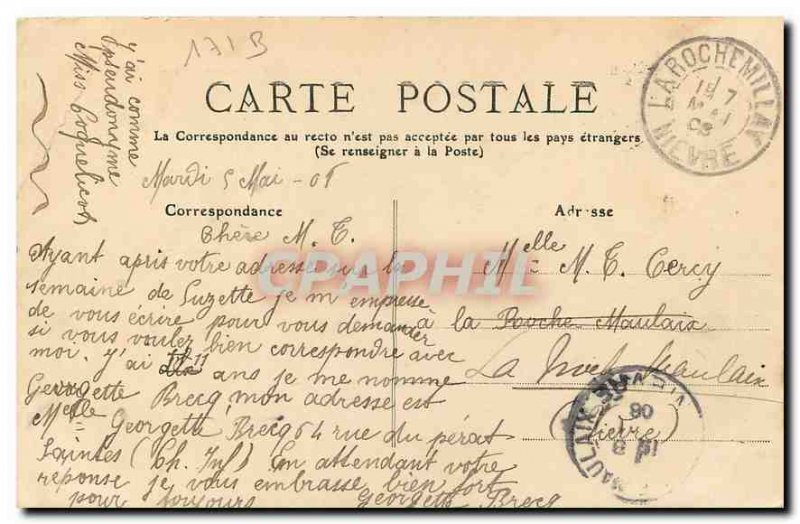 171B
y'ai comme
pseudonyme
Miss Coquelicot
CARTE POSTALE
La Correspondance au recto n'est pas acceptée par tous les pays étrangers
(Se renseigner à la Poste)
LAROCHEMILLAY
7
MAI
08
NIEVRE
Mardi 5 Mai - 08
Correspondance
Adresse
Chère M. T.
Ayant apris votre adresse sur la
semaine de Suzette je m'empresse
de vous écrire pour vous demander
si vous voulez bien correspondre avec
moi. y'ai 11 ans je me nomme
Georgette Brecq mon adresse est
Melle Georgette Brecq 64 rue du pérat
Saintes (Ch. Inf) En attendant votre
réponse je vous embrasse bien fort
pour toujours Georgette Brecq
Melle M. T. Cercy
à la Roche Maulaix
La Maulaix
(Nièvre)
MAULAIX
08
CPAPHIL.COM